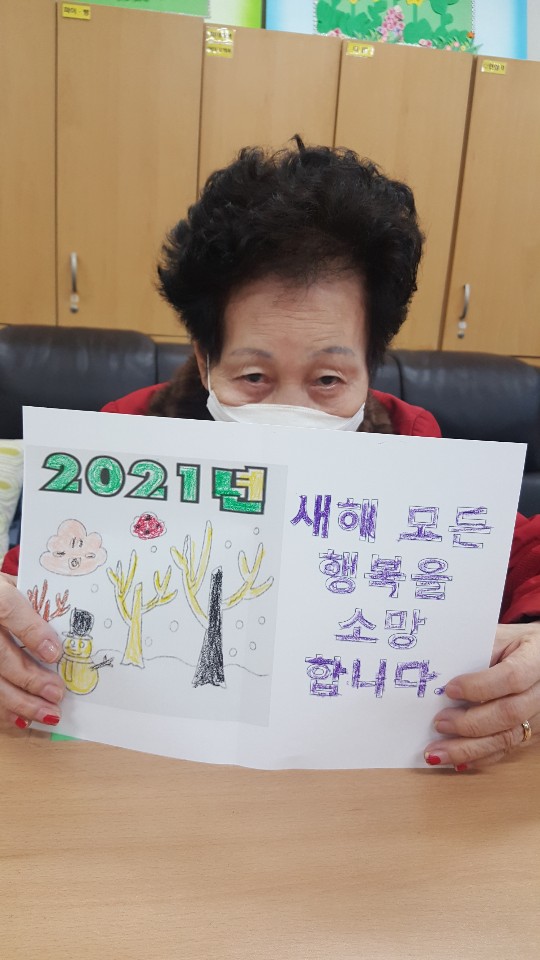 2021년
새해 모든
행복을
소망
합니다.